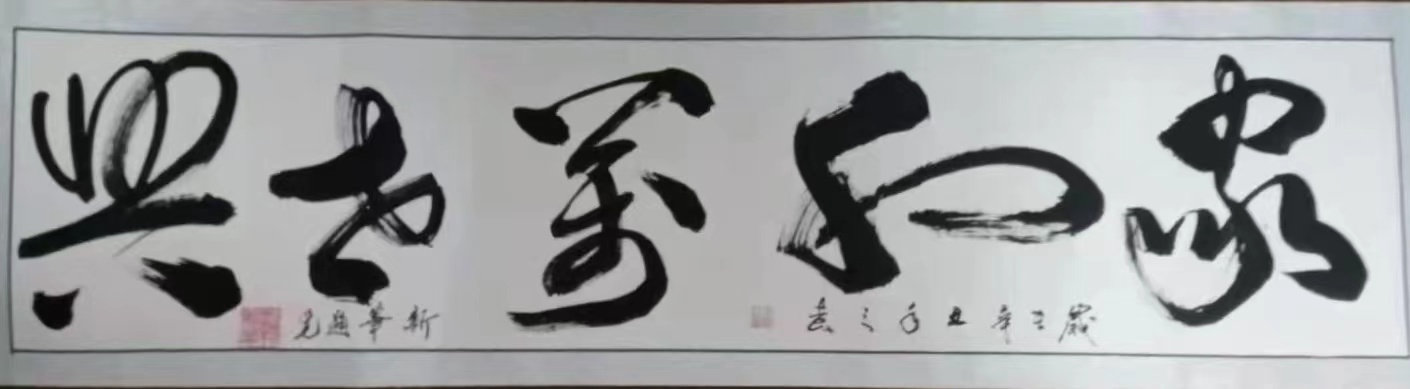 家和萬事興
歲在辛丑年之春
新華